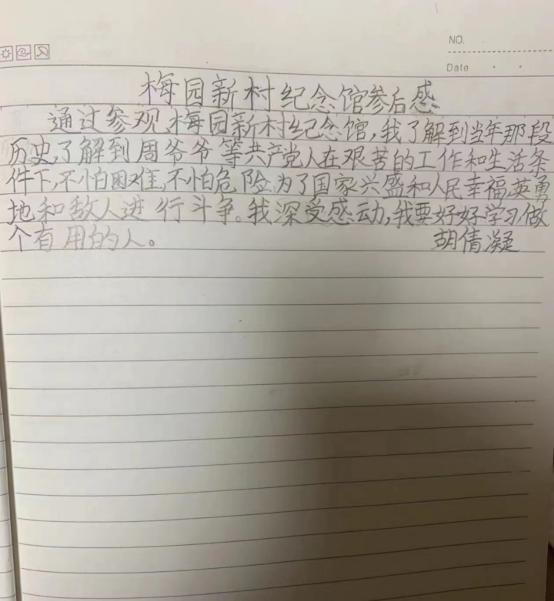 NO.
Date
梅园新村纪念馆参后感
通过参观,梅园新村纪念馆,我了解到当年那段
历史,了解到周爷爷等共产党人在艰苦的工作和生活条
件下,不怕困难,不怕危险,为了国家兴盛和人民幸福,英勇
地和敌人进行斗争。我深受感动,我要好好学习做
个有用的人。
胡倩凝